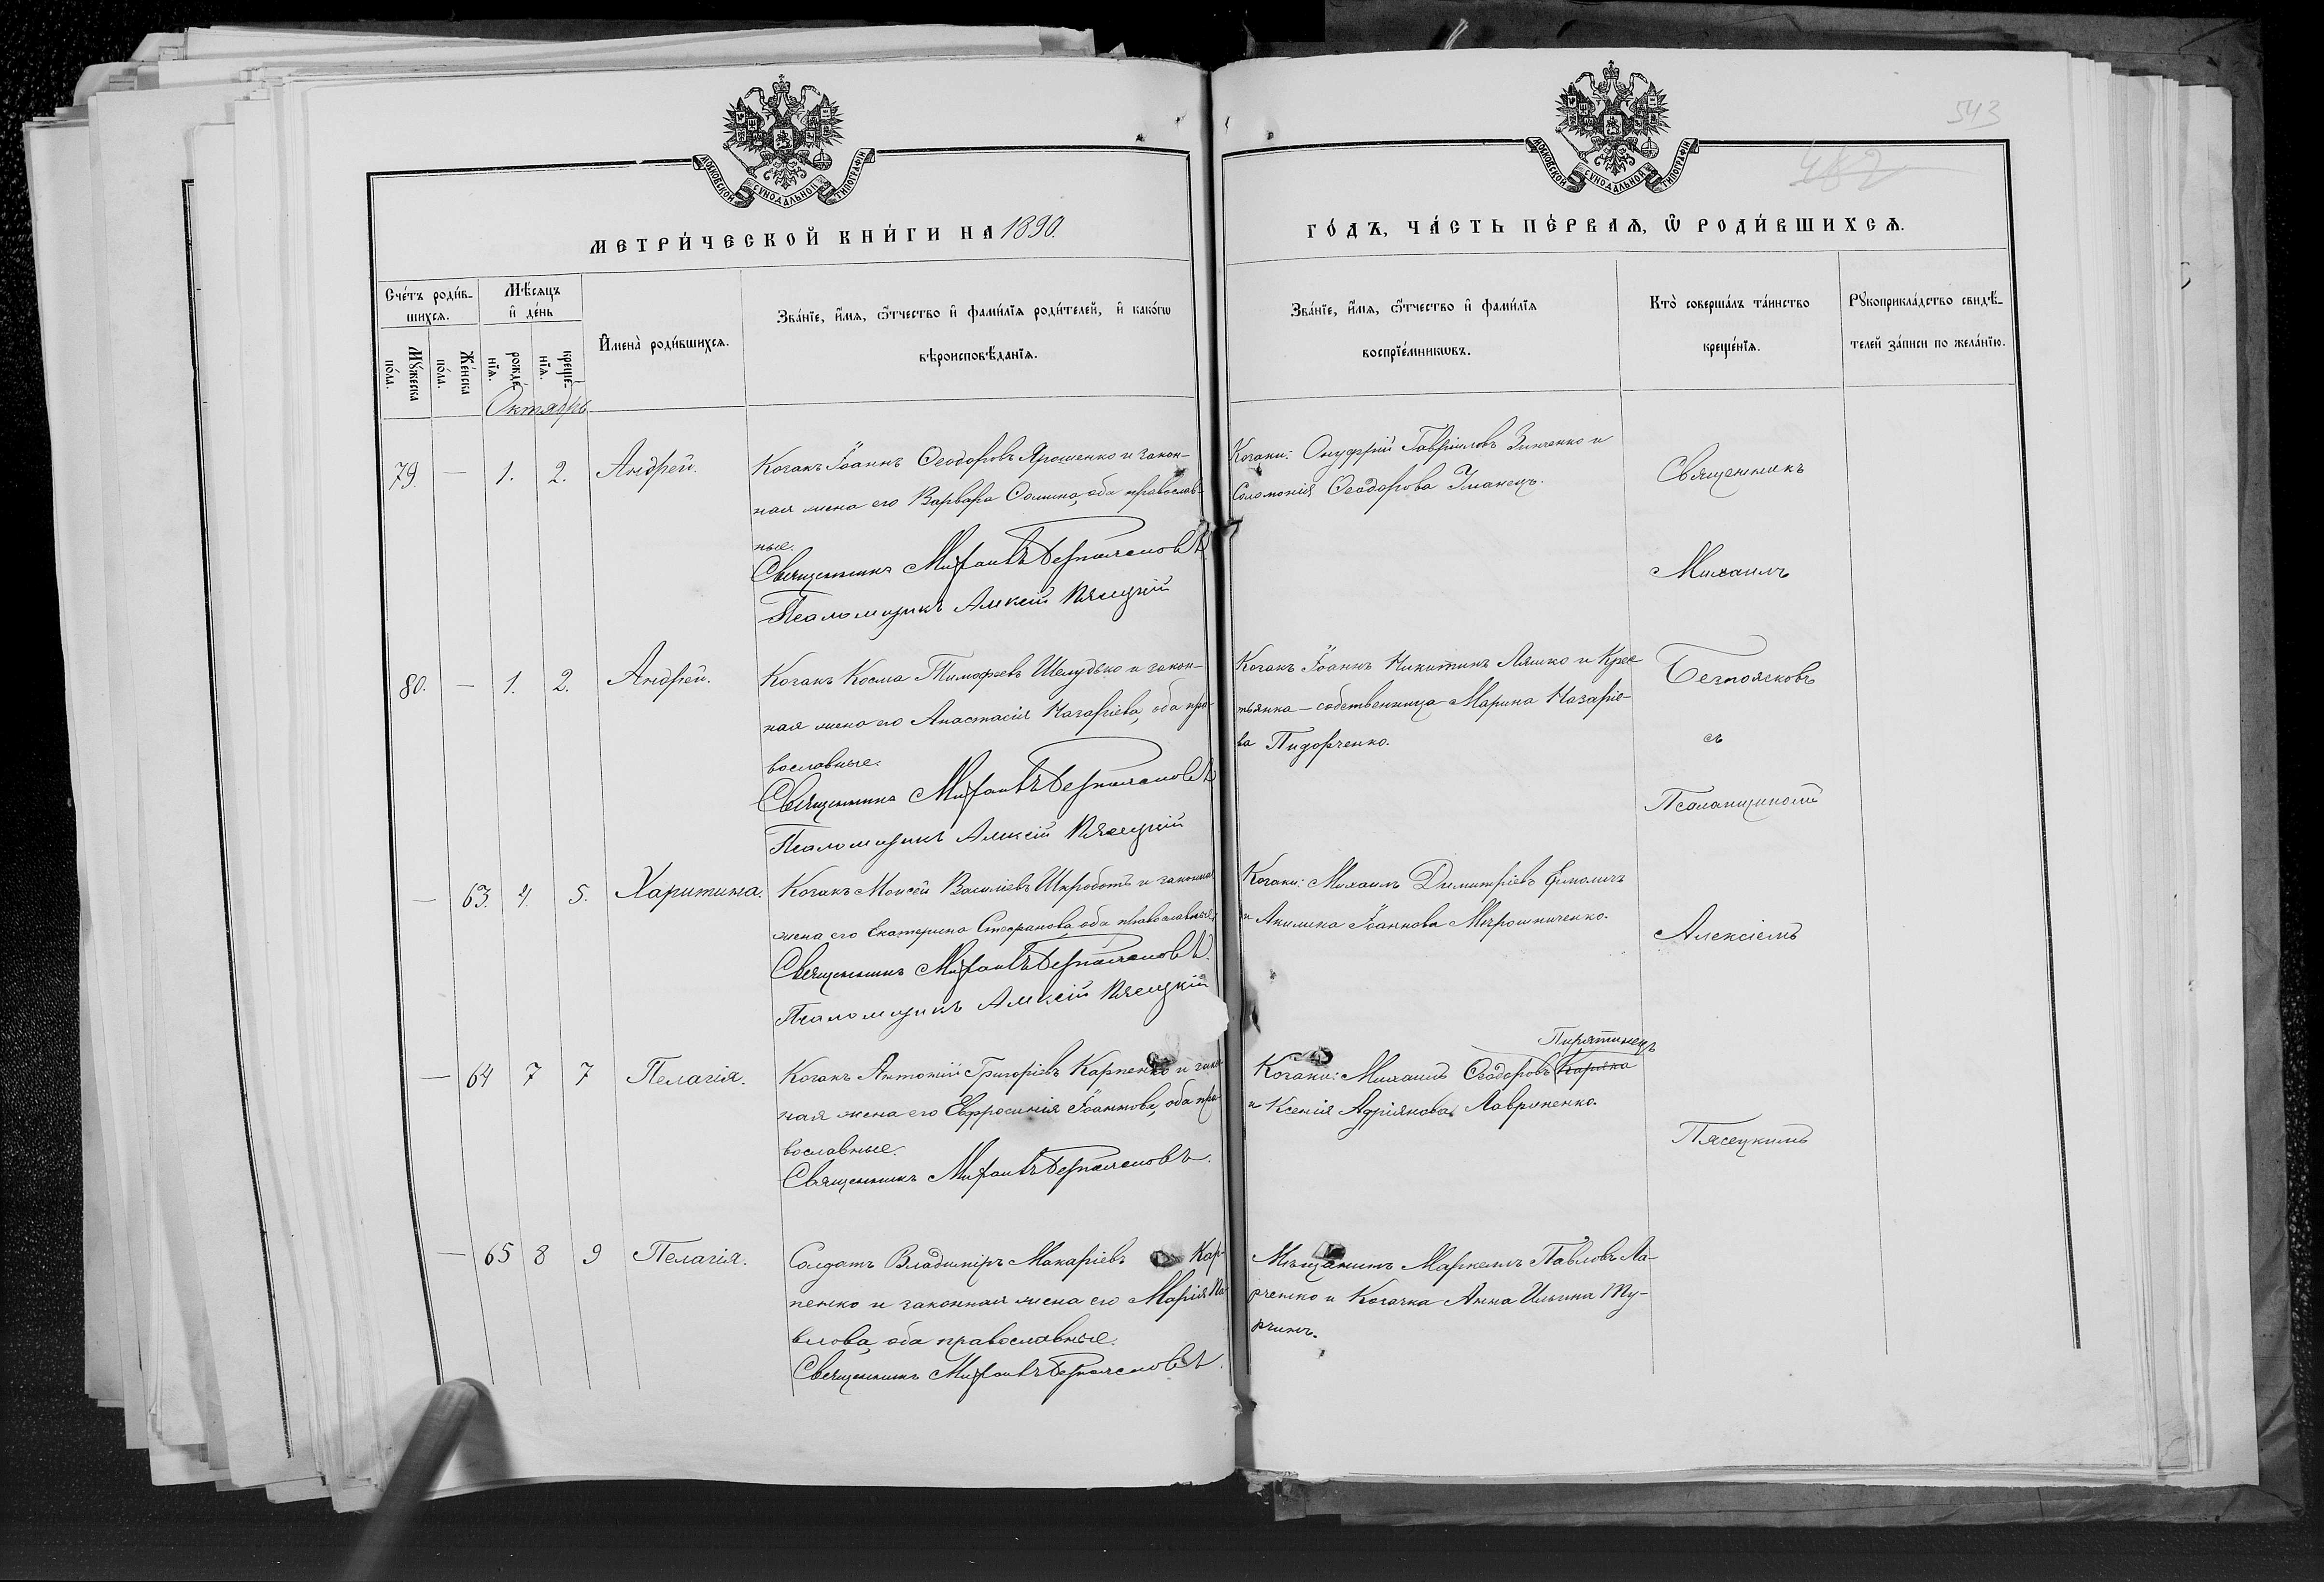 543
482
МОСКОВСКОЙ СѴНОДАЛЬНОЙ ТИПОГРАФІИ
МОСКОВСКОЙ СѴНОДАЛЬНОЙ ТИПОГРАФІИ
МЕТРИ́ЧЕСКОЙ КНИ́ГИ НА 1890.
ГО́ДЪ, ЧА́СТЬ ПЕ́РВАѦ, Ѡ҆ РОДИ́ВШИХСѦ.
Сче́тъ роди́в-
шихсѧ.
Мꙋ́жеска
по́ла.
Же́нска
по́ла.
Мѣ́сѧцъ
и҆ де́нь
рожде́-
нїѧ.
креще́-
нїѧ.
И҆мена̀ роди́вшихсѧ.
Зва́нїе, и҆́мѧ, ѻ҆́тчество и҆ фами́лїѧ роди́телей, и҆ како́гѡ
вѣроисповѣ́данїѧ.
Зва́нїе, и҆́мѧ, ѻ҆́тчество и҆ фами́лїѧ
воспрїе́мникѡвъ.
Кто̀ соверша́лъ та́инство
креще́нїѧ.
Рꙋкоприкла́дство свидѣ́-
телей за́писи по жела́нїю.
Октябрь
79. — 1. 2. Андрей.
Козакъ Іоаннъ Ѳеодоровъ Ярошенко и закон-
ная жена его Варвара Ѳомина, оба православ-
ные.
Священникъ Михаилъ Безпоясковъ
Псаломщикъ Алексій Пясецкій
Козаки: Онуфрій Гавріиловъ Зинченко и
Соломонія Ѳеодорова
80. — 1. 2. Андрей.
Козакъ Косма Тимофеевъ Шелудько и закон-
ная жена его Анастасія Назаріева, оба пра-
вославные.
Священникъ Михаилъ Безпоясковъ
Псаломщикъ Алексій Пясецкій
Козакъ Іоаннъ Никитинъ Ляшко и Крес-
тьянка-собственница Марина Назаріе-
ва Пидорченко.
— 63. 4. 5. Харитина.
Козакъ Моисей Василіевъ Шкроботъ и законная
жена его Екатерина Стефанова, оба православные.
Священникъ Михаилъ Безпоясковъ.
Псаломщикъ Алексій Пясецкій
Козаки: Михаилъ Димитріевъ Ермоличъ
и Акилина Іоаннова Мирошниченко.
— 64 7 7 Пелагія.
Козакъ Антоній Григоріевъ Карпенко и закон-
ная жена его Евфросинія Іоаннова, оба пра-
вославные.
Священникъ Михаилъ Безпоясковъ.
Пирятинецъ
Козаки: Михаилъ Ѳеодоровъ
и Ксенія Адріянова Лавриненко.
— 65 8 9 Пелагія.
Солдатъ Владиміръ Макаріевъ Кар-
пенко и законная жена его Марія Па-
влова, оба православные.
Священникъ Михаилъ Безпоясковъ.
Мѣщанинъ Маркеллъ Павловъ Ла-
рченко и Козачка Анна Ильина Ту-
рчинъ.
Священникъ
Михаилъ
Безпоясковъ
съ
Псаломщикомъ
Алексіемъ
Пясецкимъ